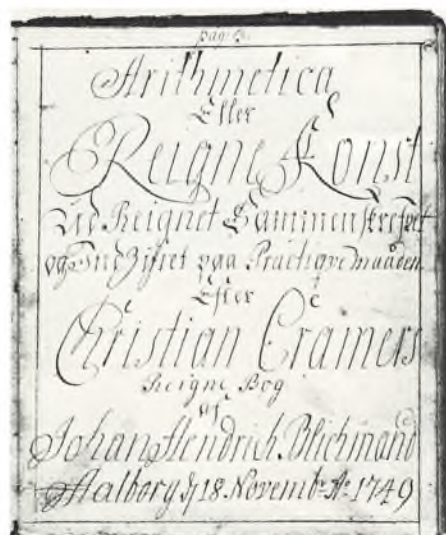 pag: 3.
Arithmetica
Eller
Reigne Konst
Ud Reignet Sammenskrefvet
og Indzifret paa Practiqve maaden
Efter
Christian Cramers
Reigne Bog
af
Johan Hendrich Blichmand
Aalborg d 18. Novembr Ao 1749